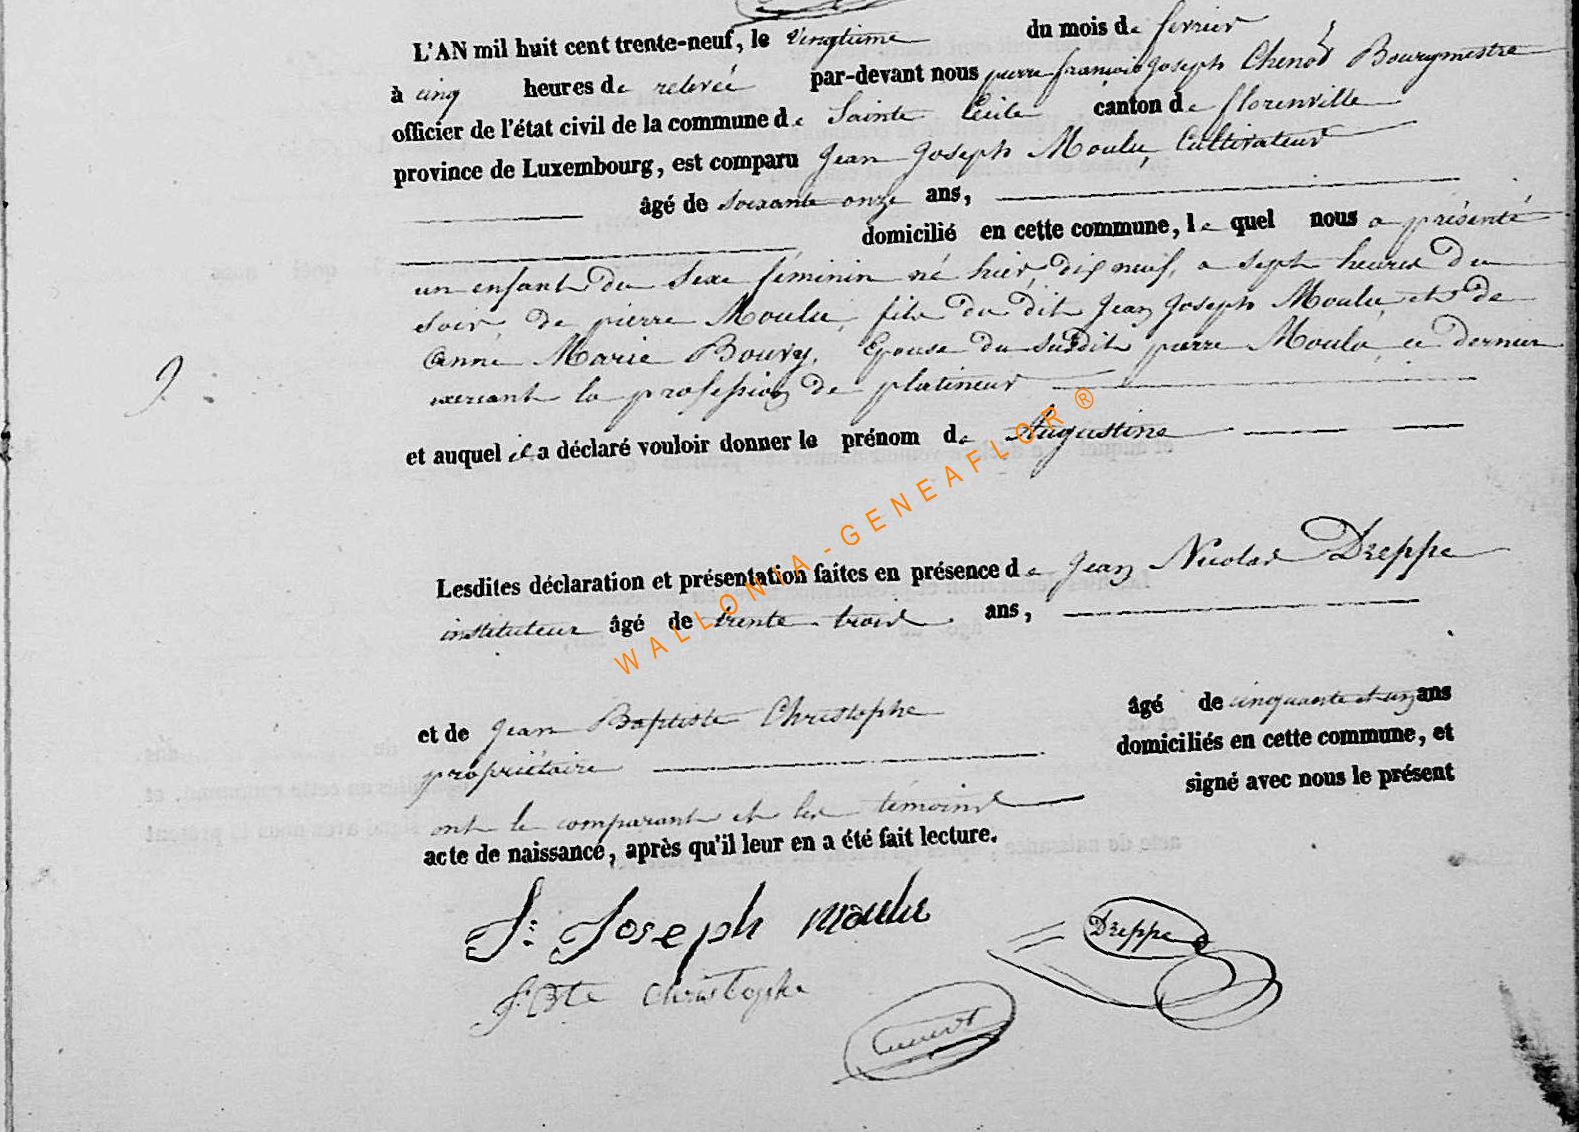 L'AN mil huit cent trente-neuf, le vingtieme du mois de fevrier
à cinq heures de relevée par-devant nous pierre françois joseph Chenot Bourgmestre
officier de l'état civil de la commune de Sainte Cécile canton de florenville
province de Luxembourg, est comparu Jean Joseph Moulu, Cultivateur
âgé de soixante onze ans,
domicilié en cette commune, le quel nous a présenté
un enfant du Sexe féminin né hier, dix neuf, a sept heures du
soir, de pierre Moulu, fils du dit Jean Joseph Moulu, et de
Anne Marie Bouvy, Epouse du susdit pierre Moulu, ce dernier
exercant la profession de platineur
et auquel il a déclaré vouloir donner le prénom de Augustine
WALLONIA-GENEAFLOR ®
Lesdites déclaration et présentation faites en présence de Jean Nicolas Dreppe
instituteur âgé de trente trois ans,
et de Jean Baptiste Christophe âgé de cinquante et un ans
propriétaire domiciliés en cette commune, et
ont le comparant et les témoins signé avec nous le présent
acte de naissance, après qu'il leur en a été fait lecture.
J: Joseph moulu
Dreppe
J: Bte Christophe